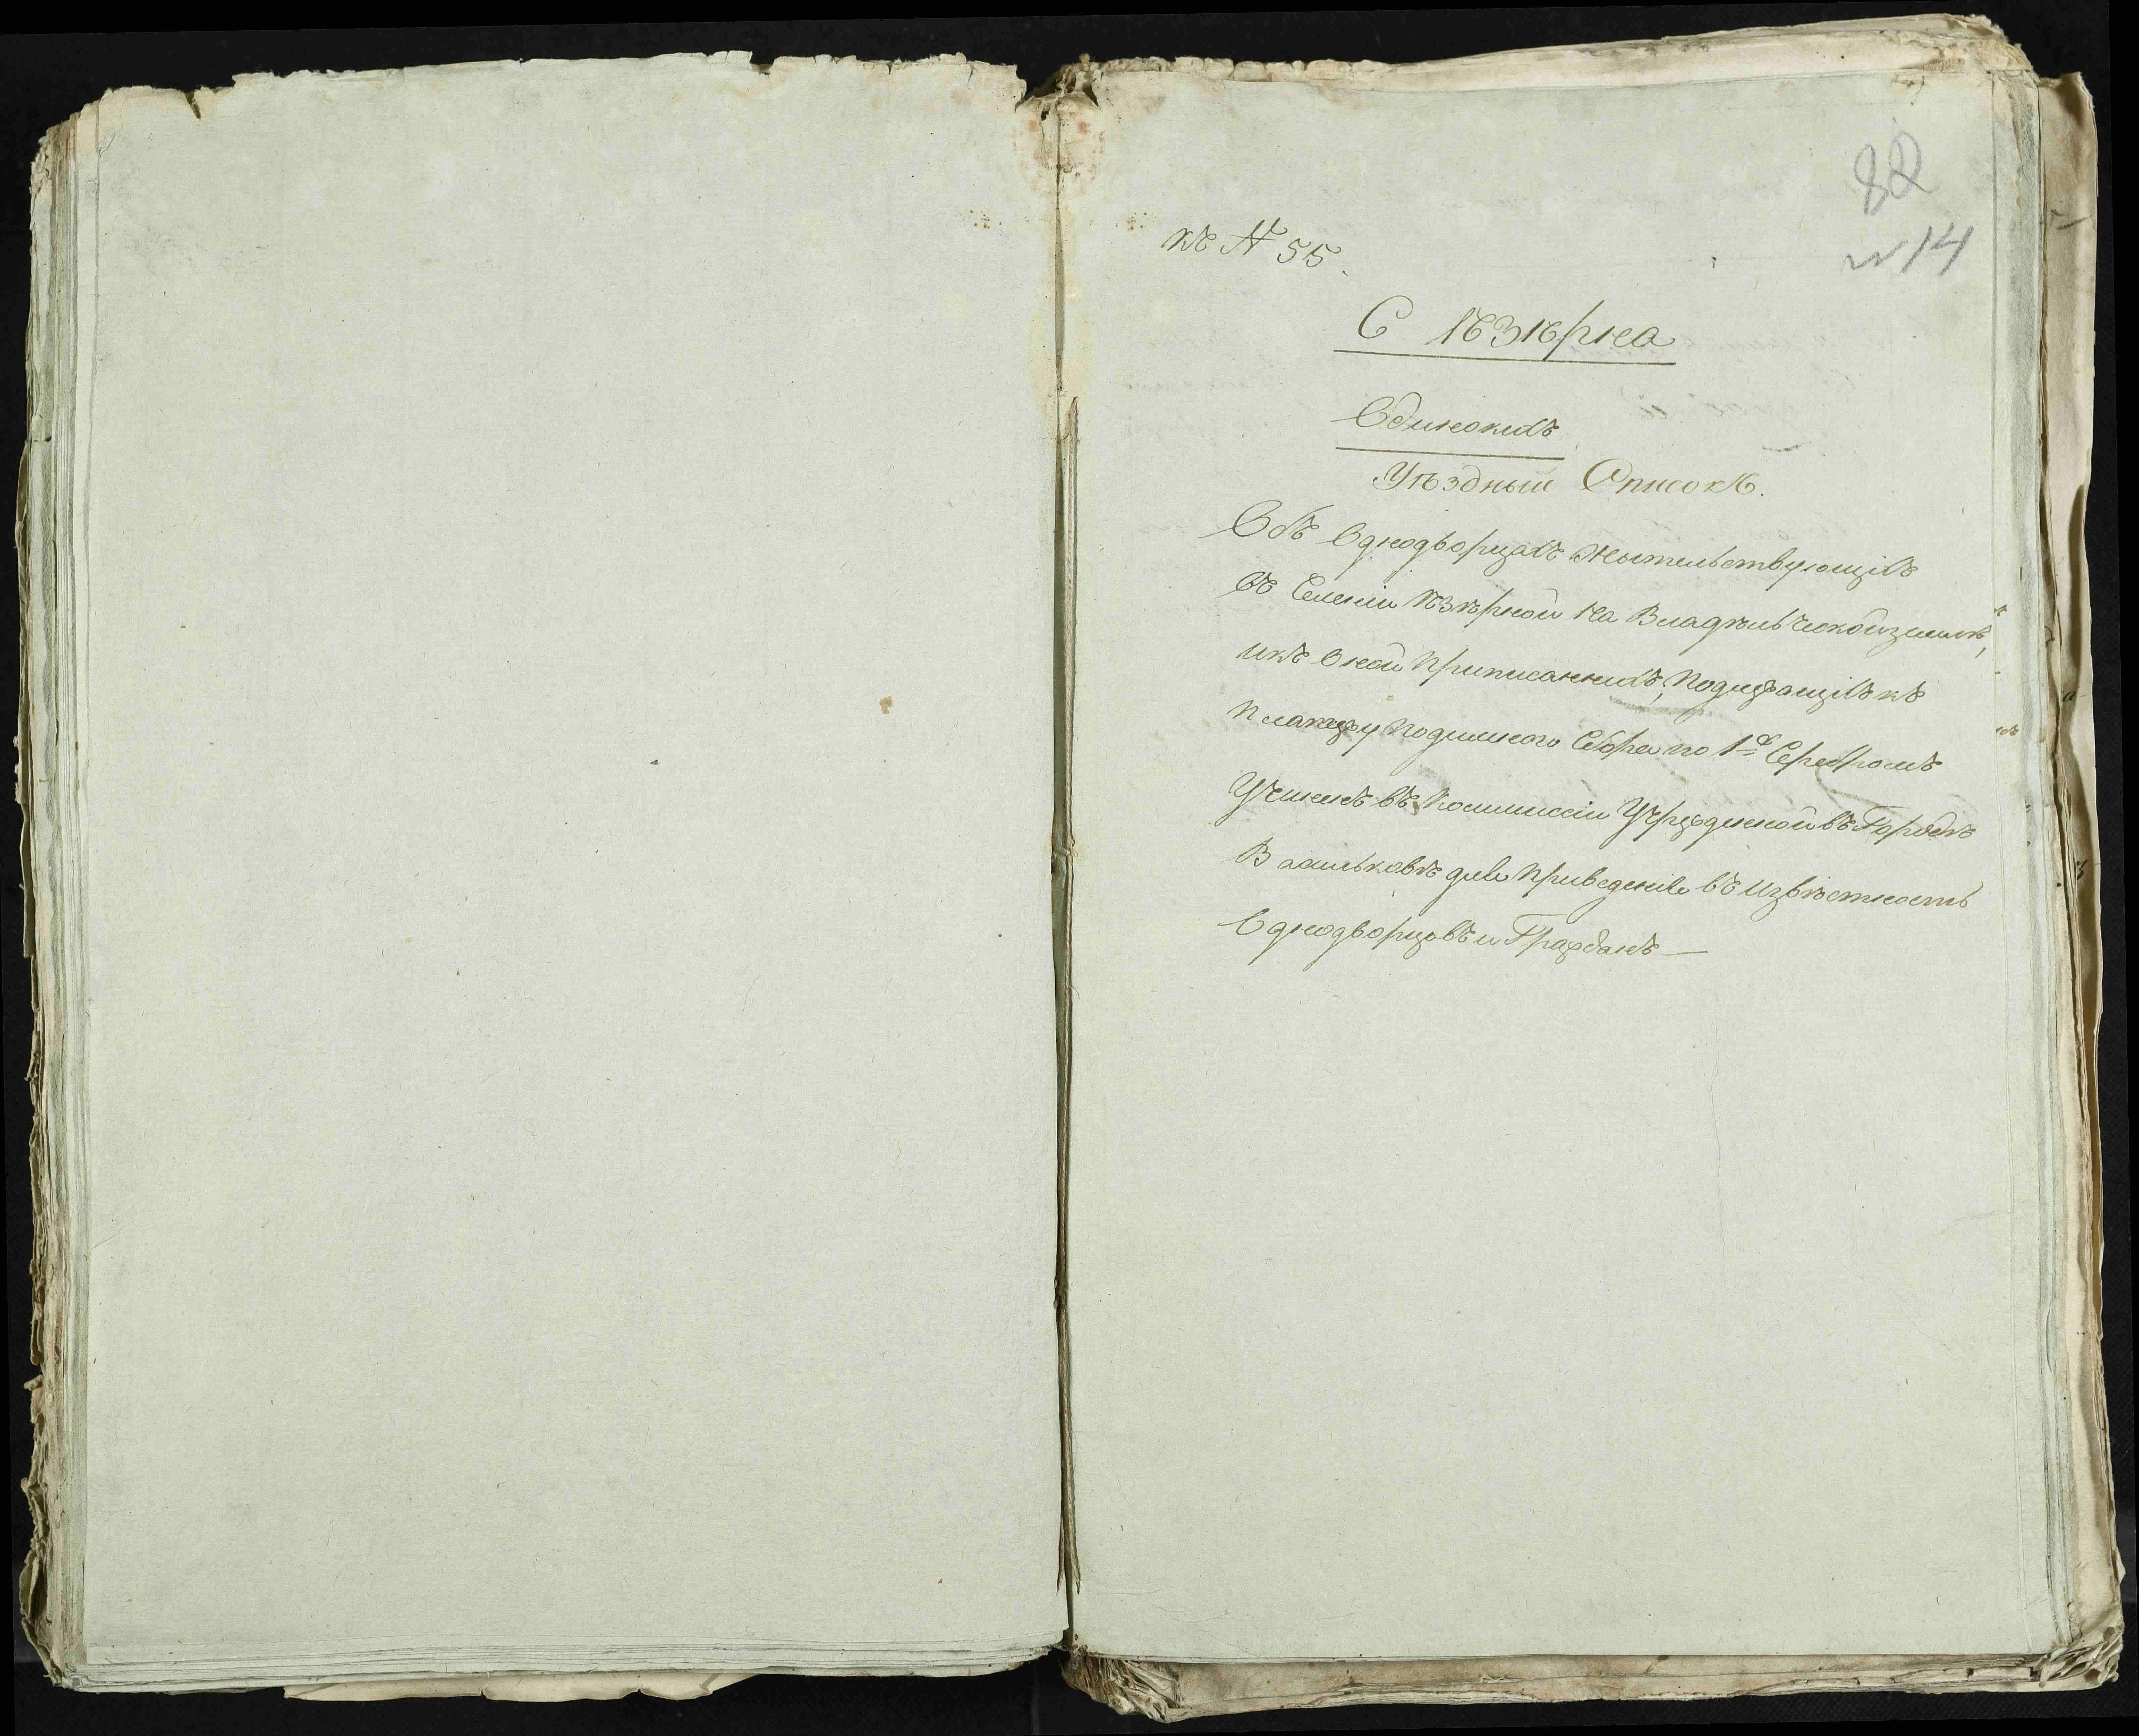 82
14
къ N 55.
С ѣзѣрна
Одинокихъ
Уѣздный Списокъ.
Объ Однодворцахъ Жытельствующихъ
въ Селеніи ѣзѣрной на Владѣльческой землѣ,
икъ оной приписанныхъ, подлежащихъ къ
платежу подимного Сбора по 1 Серебромъ
Учиненъ въ Коммиссіи Учрежденной въ Городѣ
Васильковѣ для приведенія въ Извѣстность
Однодворцовъ и Гражданъ —